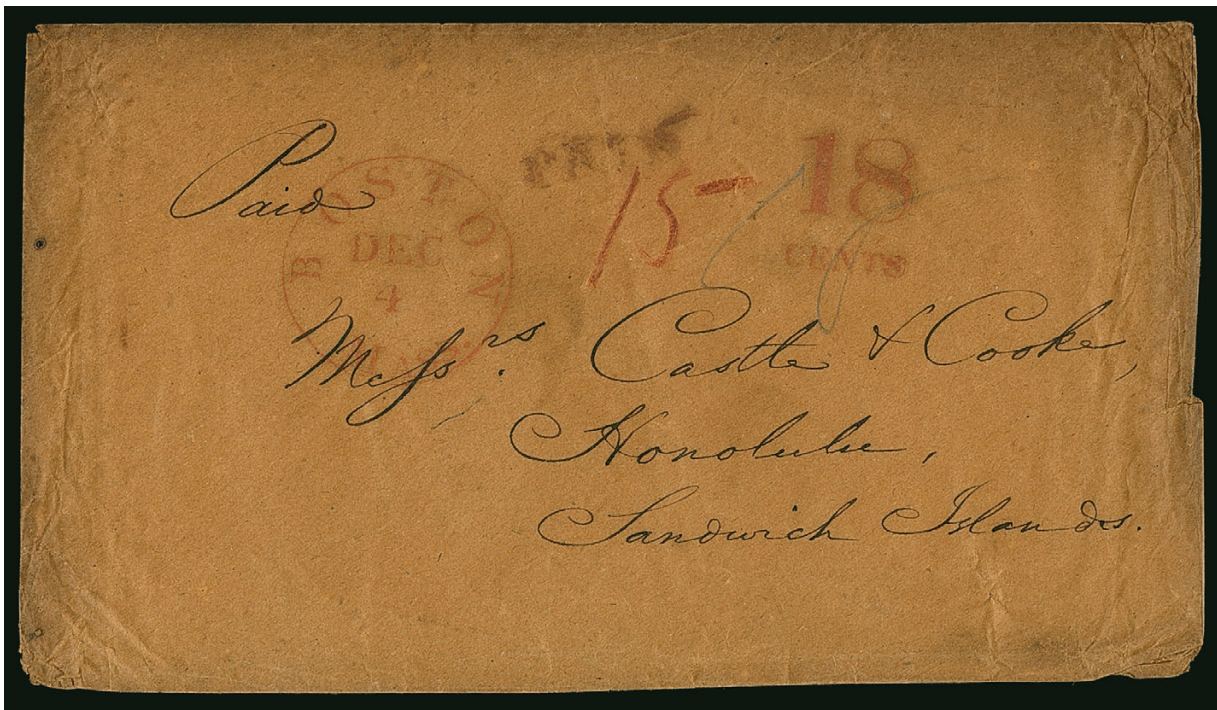 Paid
BOSTON
DEC
4
PAID
15
18
CENTS
18
Messrs. Castle & Cooke,
Honolulu,
Sandwich Islands.